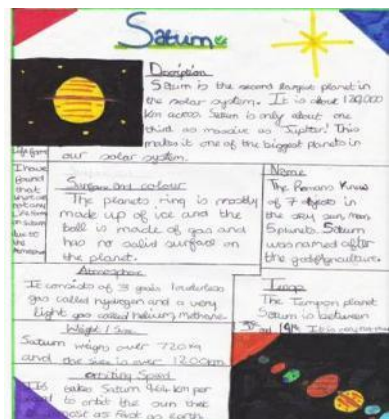 Saturn
Description
Saturn is the second largest planet in
the solar system. It is about 120,000
km across Saturn is only about one
third as massive as Jupiter! This
makes it one of the biggest planets in
our solar system.
Life form
I have
found
that
not any
life form
on Saturn
due to
the
Surface and colour
The planets ring is mostly
made up of ice and the
ball is made of gas and
has no solid surface on
the planet.
Name
The Romans Knew
of 7 objects in
the sky sun, moon
5 planets. Saturn
was named after
the god
Atmosphere
It consists of 3 gasis
gas called hydrogen and a very
light gas called helium, methane.
Weight / Size
Saturn weighs over 720kg
and the size is over 1200km.
Temp
The Temp on planet
Saturn is between
It is very
Orbiting Speed
takes Saturn km per
to orbit the sun
as fast as earth